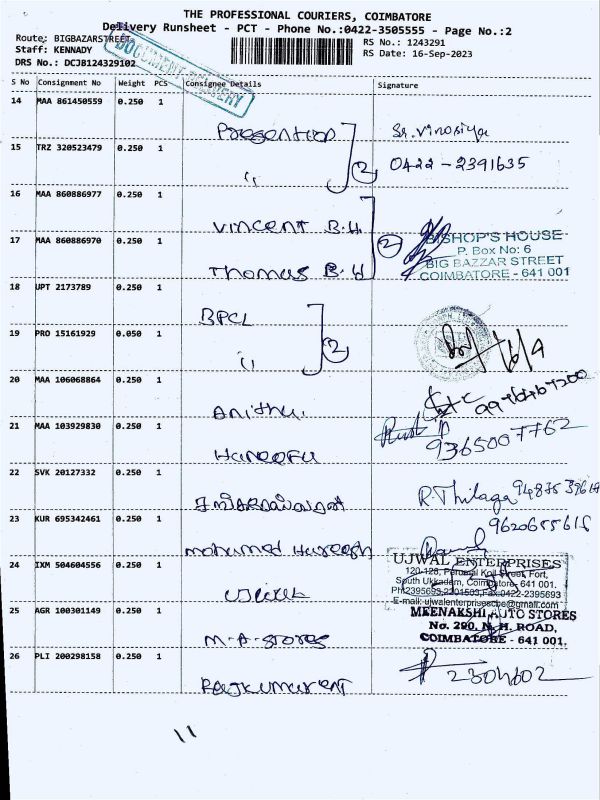 THE PROFESSIONAL COURIERS, COIMBATORE
Delivery Runsheet - PCT - Phone No.:0422-3505555 - Page No.:2
Route: BIGBAZARSTREET
RS No.: 1243291
Staff: KENNADY
RS Date: 16-Sep-2023
DRS No.: DCJB124329102
DOCUMENT DELIVERY
S No Consignment No Weight PCS Consignee Details Signature
14 MAA 861450559 0.250 1 Presention Sr. Vinosiya
15 TRZ 320523479 0.250 1 " 2 0422-2391635
16 MAA 860886977 0.250 1 Vincent B.H.
17 MAA 860886970 0.250 1 Thomas B.H 2
BISHOP'S HOUSE
P. Box No: 6
BIG BAZZAR STREET
COIMBATORE - 641 001
18 UPT 2173789 0.250 1 BPCL
19 PRO 15161929 0.050 1 " 2
20 MAA 106068864 0.250 1 Anithu.
21 MAA 103929830 0.250 1 Haneefu 9365007762
22 SVK 20127332 0.250 1 R. Thilaga
23 KUR 695342461 0.250 1 mohamed Hareesh 9620655616
24 IXM 504604556 0.250 1
UJWAL ENTERPRISES
120-128, Perumal Koil Street, Fort,
South Ukkadam, Coimbatore- 641 001.
E-mail: ujwalenterprisescbe@gmail.com
25 AGR 100301149 0.250 1 M.A. Stores
MEENAKSHI AUTO STORES
No. 290, N. H. ROAD,
COIMBATORE - 641 001.
26 PLI 200298158 0.250 1 Rajkumarent 2304602
11